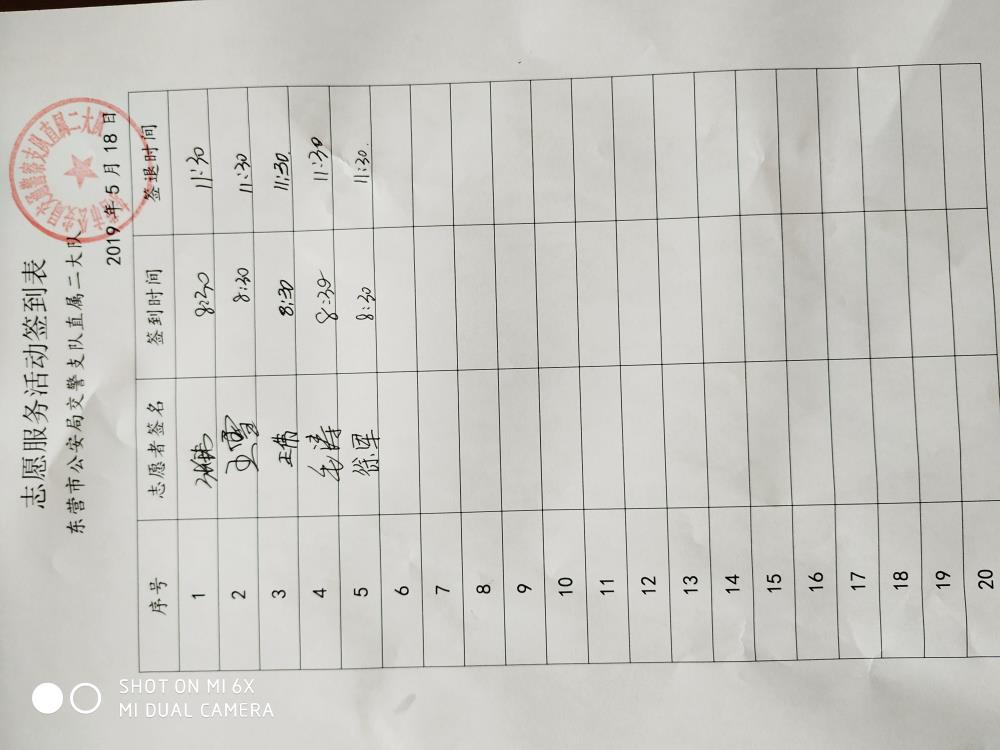 志愿服务活动签到表
东营市公安局交警支队直属二大队
2019 年 5 月 18 日
序号 志愿者签名 签到时间 签退时间
1 8:30 11:30
2 8:30 11:30
3 王伟 8:30 11:30.
4 毛涛 8:30 11:30
5 徐军 8:30 11:30.
6
7
8
9
10
11
12
13
14
15
16
17
18
19
20
SHOT ON MI 6X
MI DUAL CAMERA